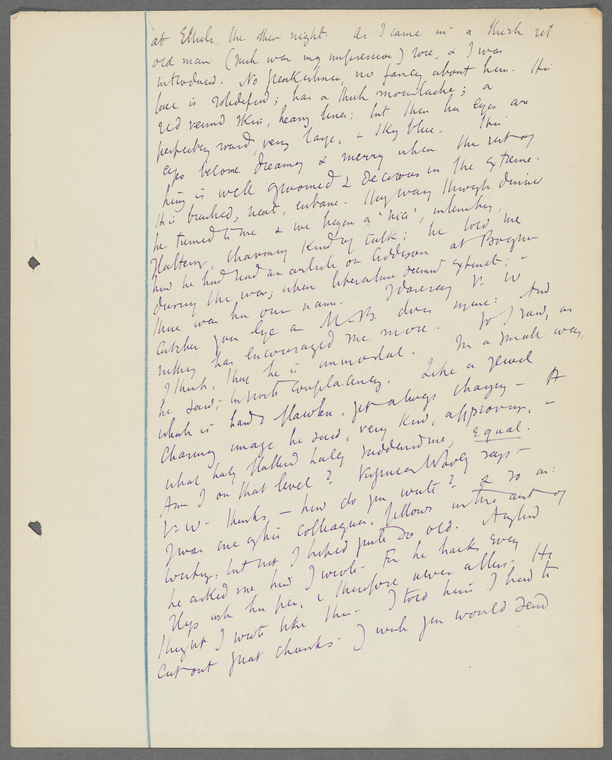 at Ethels the other night. As I came in a thick set
old man (such was my impression) rose, & I was
introduced. No speakership, no fancy about him. His
face is solidified; has a thick moustache; a
red veined skin, heavy lines; but then his eyes are
perfectly round very large, & sky blue. His
eyes become dreamy & merry when the rest of
him is well groomed & decorous in the extreme.
He is brushed, neat, urbane. Half way through dinner
he turned to me & we began a 'nice', interesting,
flattering, charming kind of talk; he told me
how he had read an article on Addison at Bognor
during the war; when literature seemed extinct; –
& there was his own name. I daresay V. W
catches your eye as M. B. does mine: And
nothing has encouraged me more.
I think, that he is immortal. So I said, as
he said; in its complacency. In a small way
which is hard & flawless, yet always changing – A
charming image he said, very kind, approving, –
what half flattered half saddened me, Equal.
Am I on that level? Virginia Woolf says –
V. W. thinks – how do you write? & so on:
I was one of his colleagues, fellows in the art of
writing: but not I hoped quite so old. Anyhow
he asked me how I wrote. For he hacks every
step with his pen, & therefore never alters. He
thought I wrote like this. I told him I had to
cut out great chunks. I wish you would send